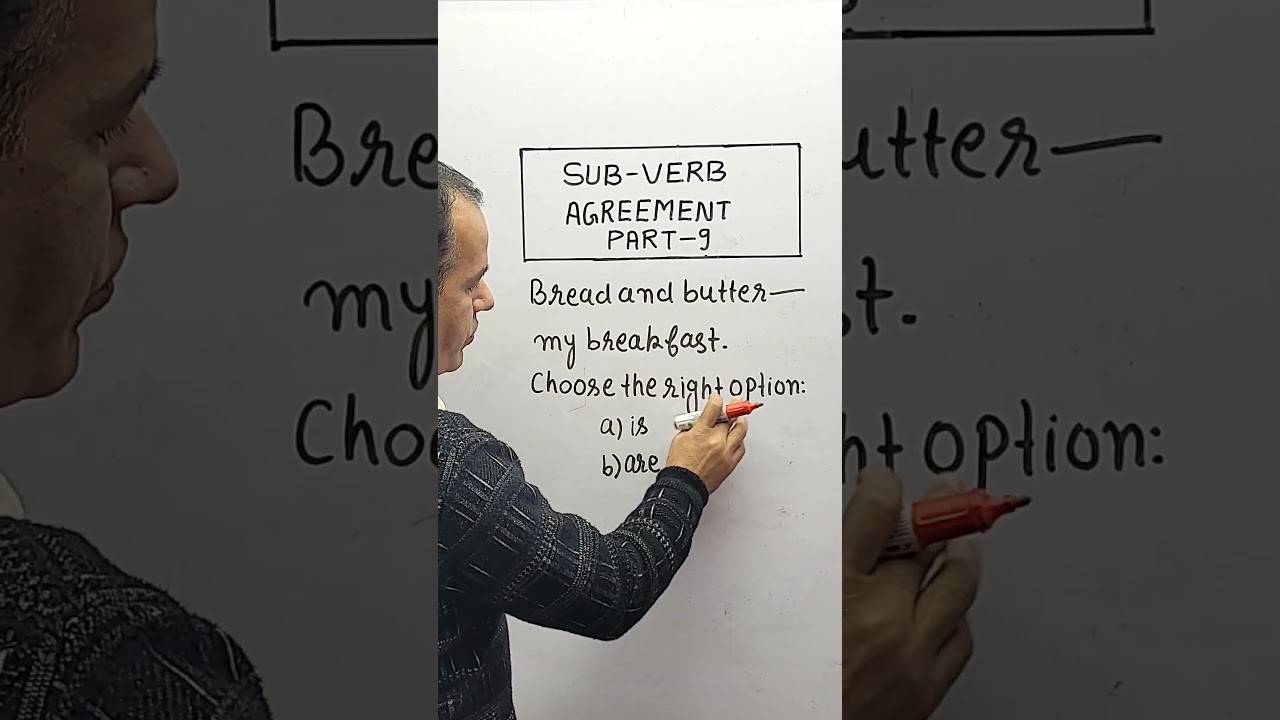 SUB-VERB
AGREEMENT
PART-9
Bread and butter—
my breakfast.
Choose the right option:
a) is
b) are